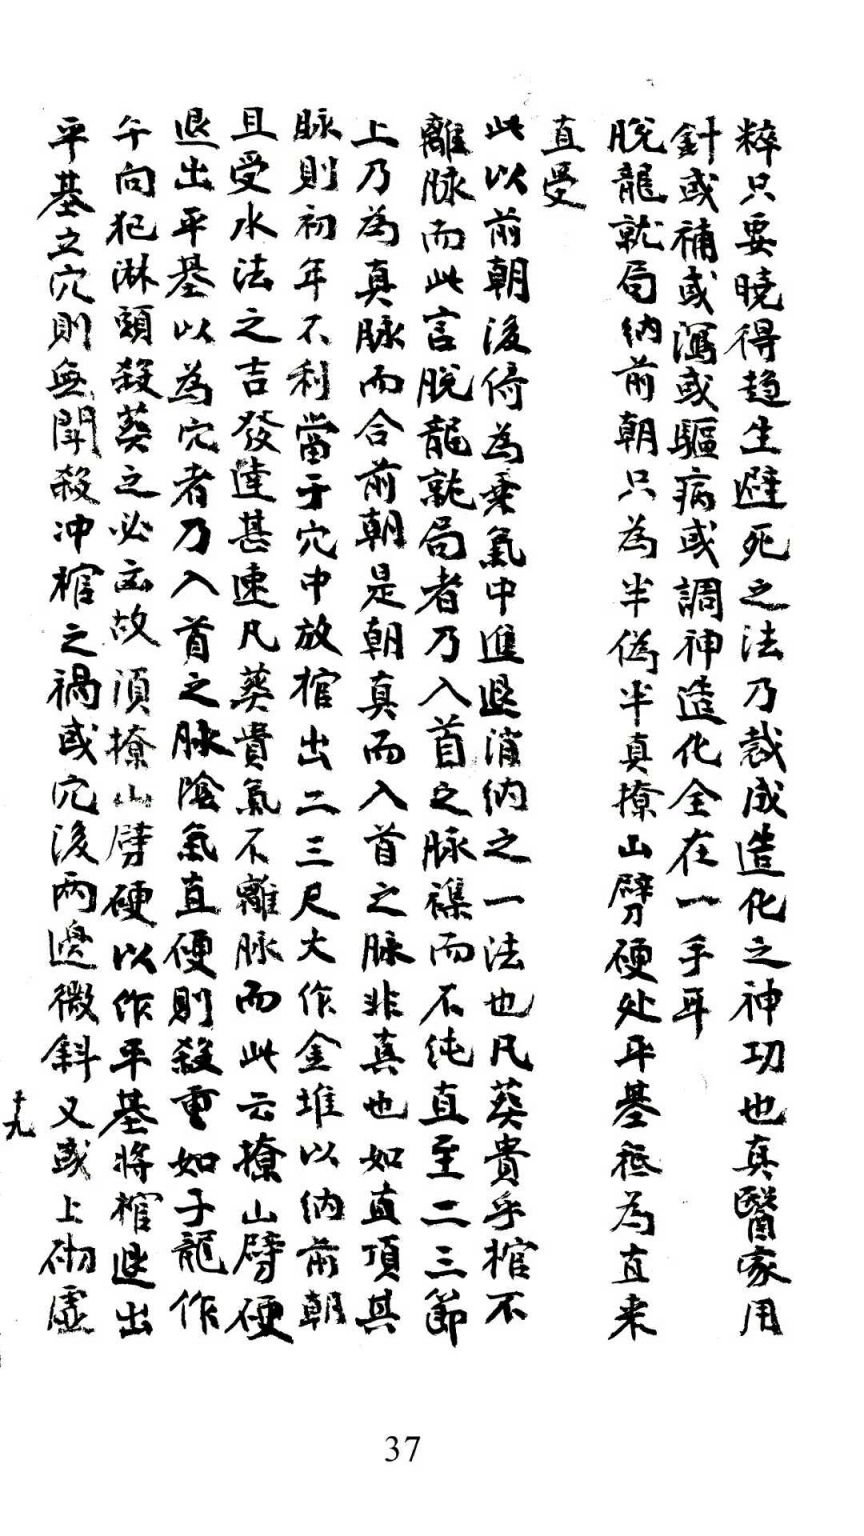 粹只要曉得趋生避死之法乃裁成造化之神功也真醫家用
針或補或瀉或驅病或調神造化全在一手耳
脫龍就局納前朝只為半偽半真撩山劈硬处平基祗為直来
直受
此以前朝後倚為乗氣中進退消納之一法也凡葬貴乎棺不
離脉而此言脫龍就局者乃入首之脉襍而不纯直至二三節
上乃為真脉而合前朝是朝真而入首之脉非真也如直頂其
脉則初年不利當于穴中放棺出二三尺大作金堆以納前朝
且受水法之吉發達甚速凡葬貴氣不離脉而此云撩山劈硬
退出平基以為穴者乃入首之脉陰氣直硬則殺重如子龍作
午向犯淋頭殺葬之必凶故須撩山劈硬以作平基將棺退出
平基立穴則無鬪殺冲棺之禍或穴後两邊微斜又或上砌虛
十九
37